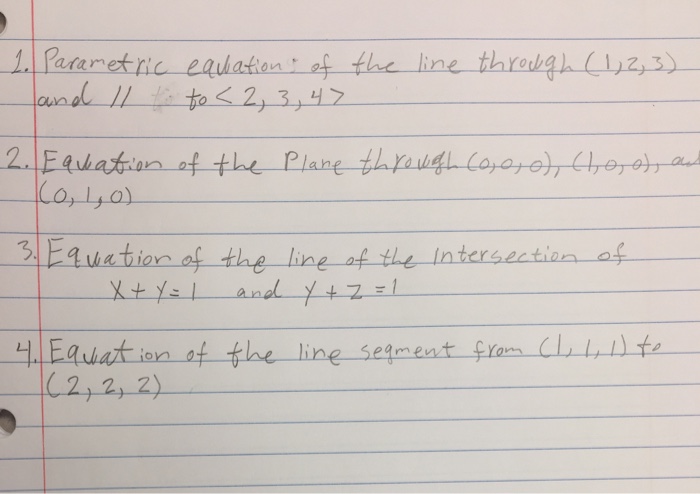 1. Parametric equations of the line through (1,2,3)
and // to <2,3,4>
2. Equation of the Plane through (0,0,0), (1,0,0), and
(0,1,0)
3. Equation of the line of the Intersection of
X+Y=1 and Y+Z=1
4. Equation of the line segment from (1,1,1) to
(2,2,2)